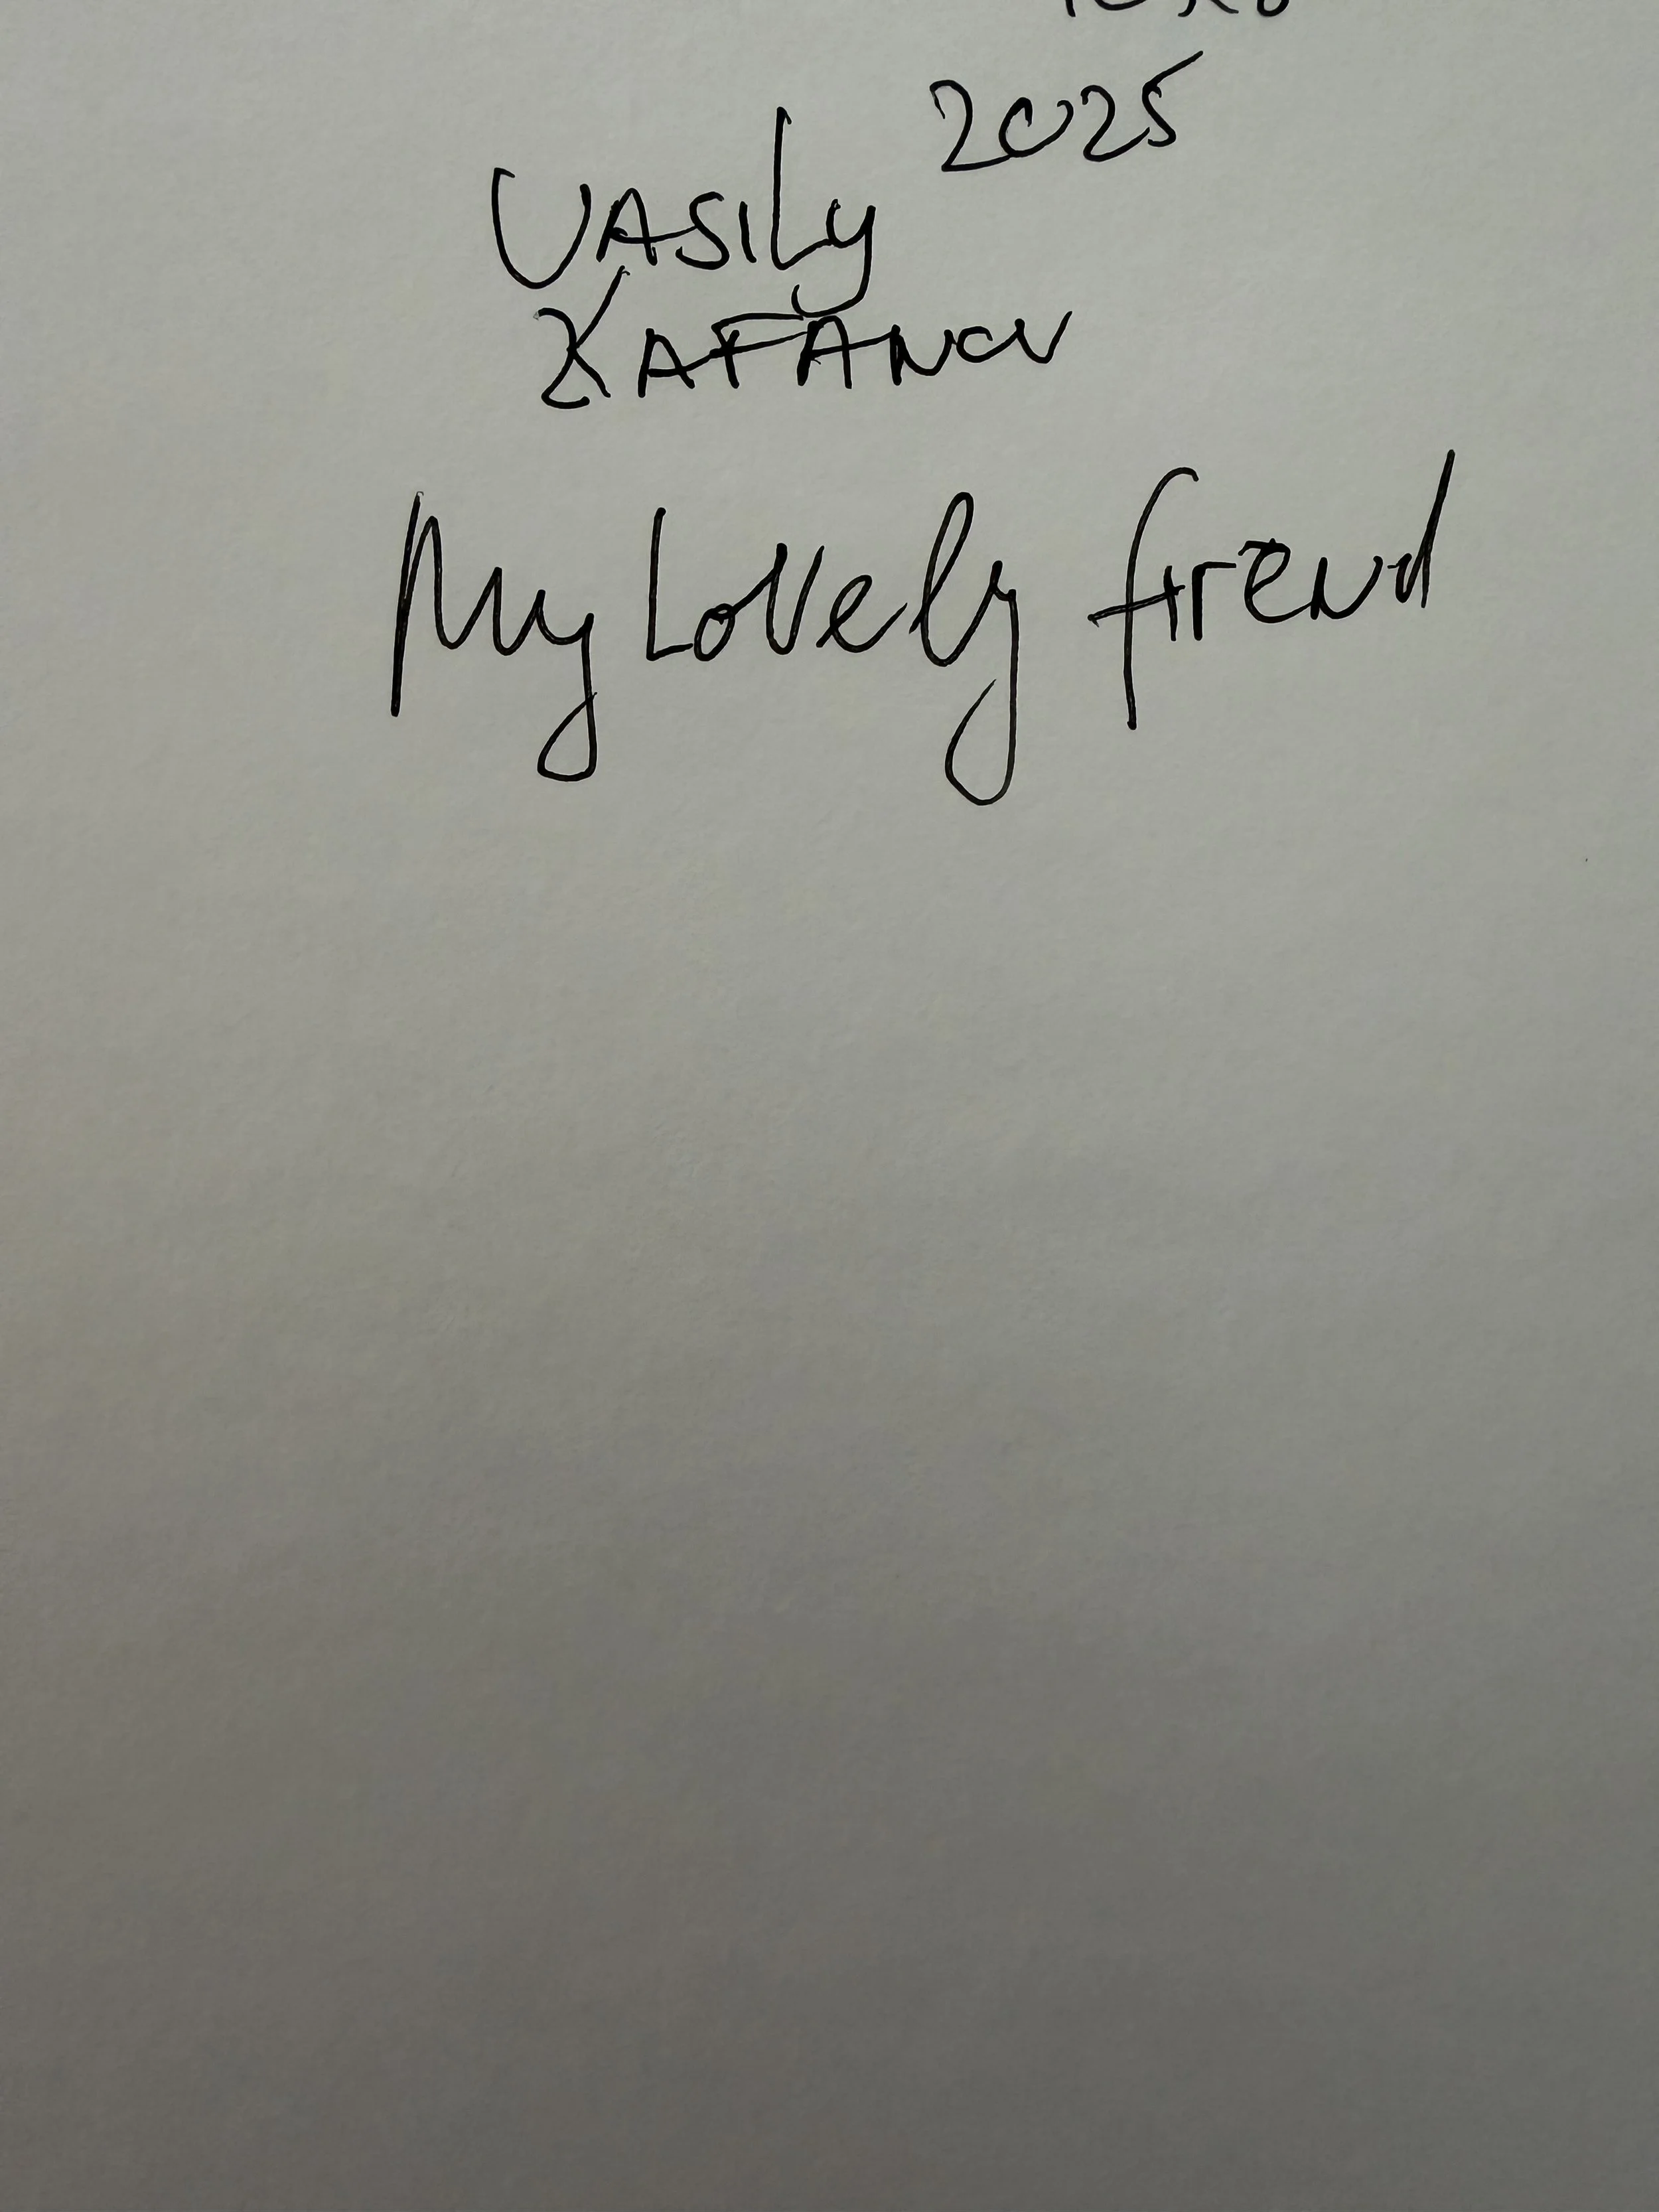 2025
VASILY
KAFANOV
My Lovely frend